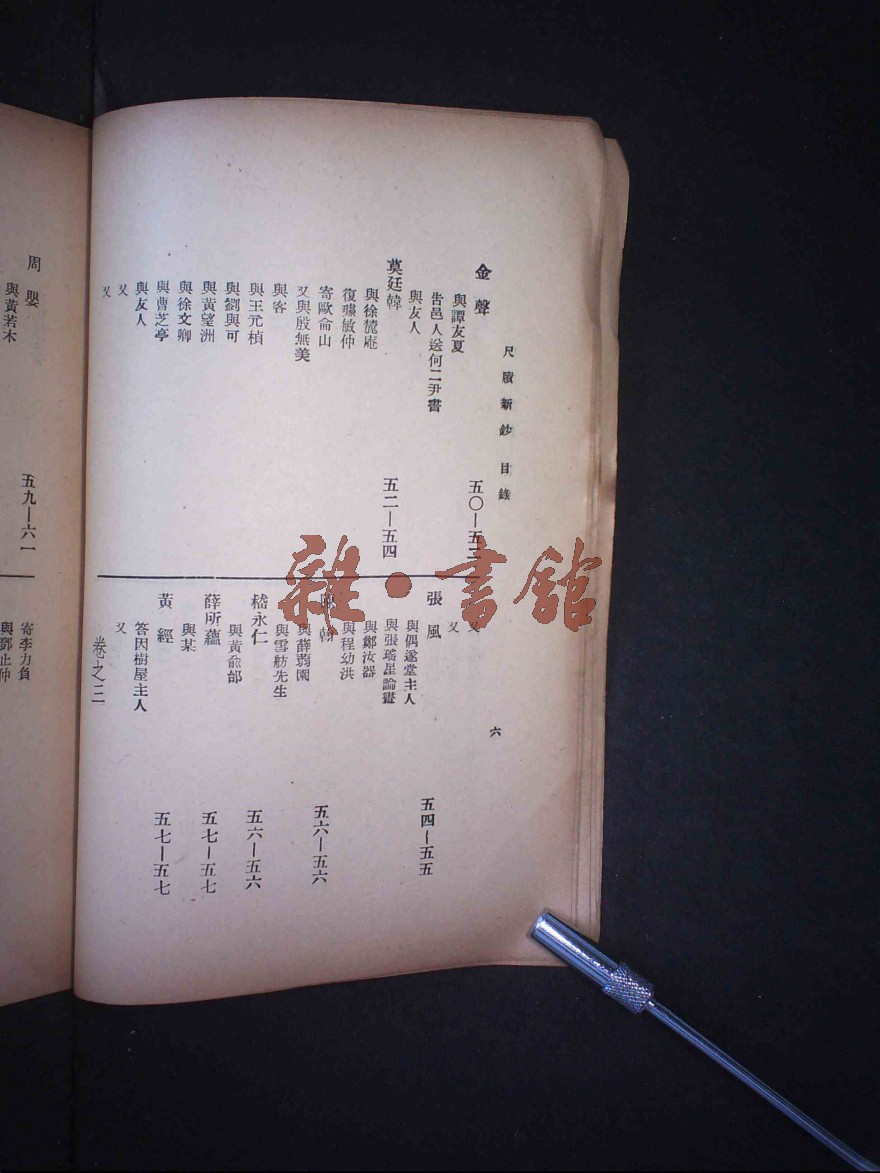 尺牘新鈔 目錄
六
金聲 五〇—五三
與譚友夏
告邑人送何二尹書
與友人
莫廷韓 五二—五四
與徐虆庵
復璩敏仲
寄歐侖山
又與殷無美
與客
與王元楨
與劉與可
與黃望洲
與徐文卿
與曹芝亭
與友人
又
又
又
又
張風 五四—五五
與偶遂堂主人
與張瑤星論畫
與鄭汝器
與程幼洪
翰 五六—五六
與薛蒻園
與雪舫先生
嵇永仁 五六—五六
與黃俞邰
薛所蘊 五七—五七
與某
黃經 五七—五七
答因樹屋主人
又
卷之三
周嬰 五九—六一
與黃若木
寄李力負
與鄧止仲
雜·書館